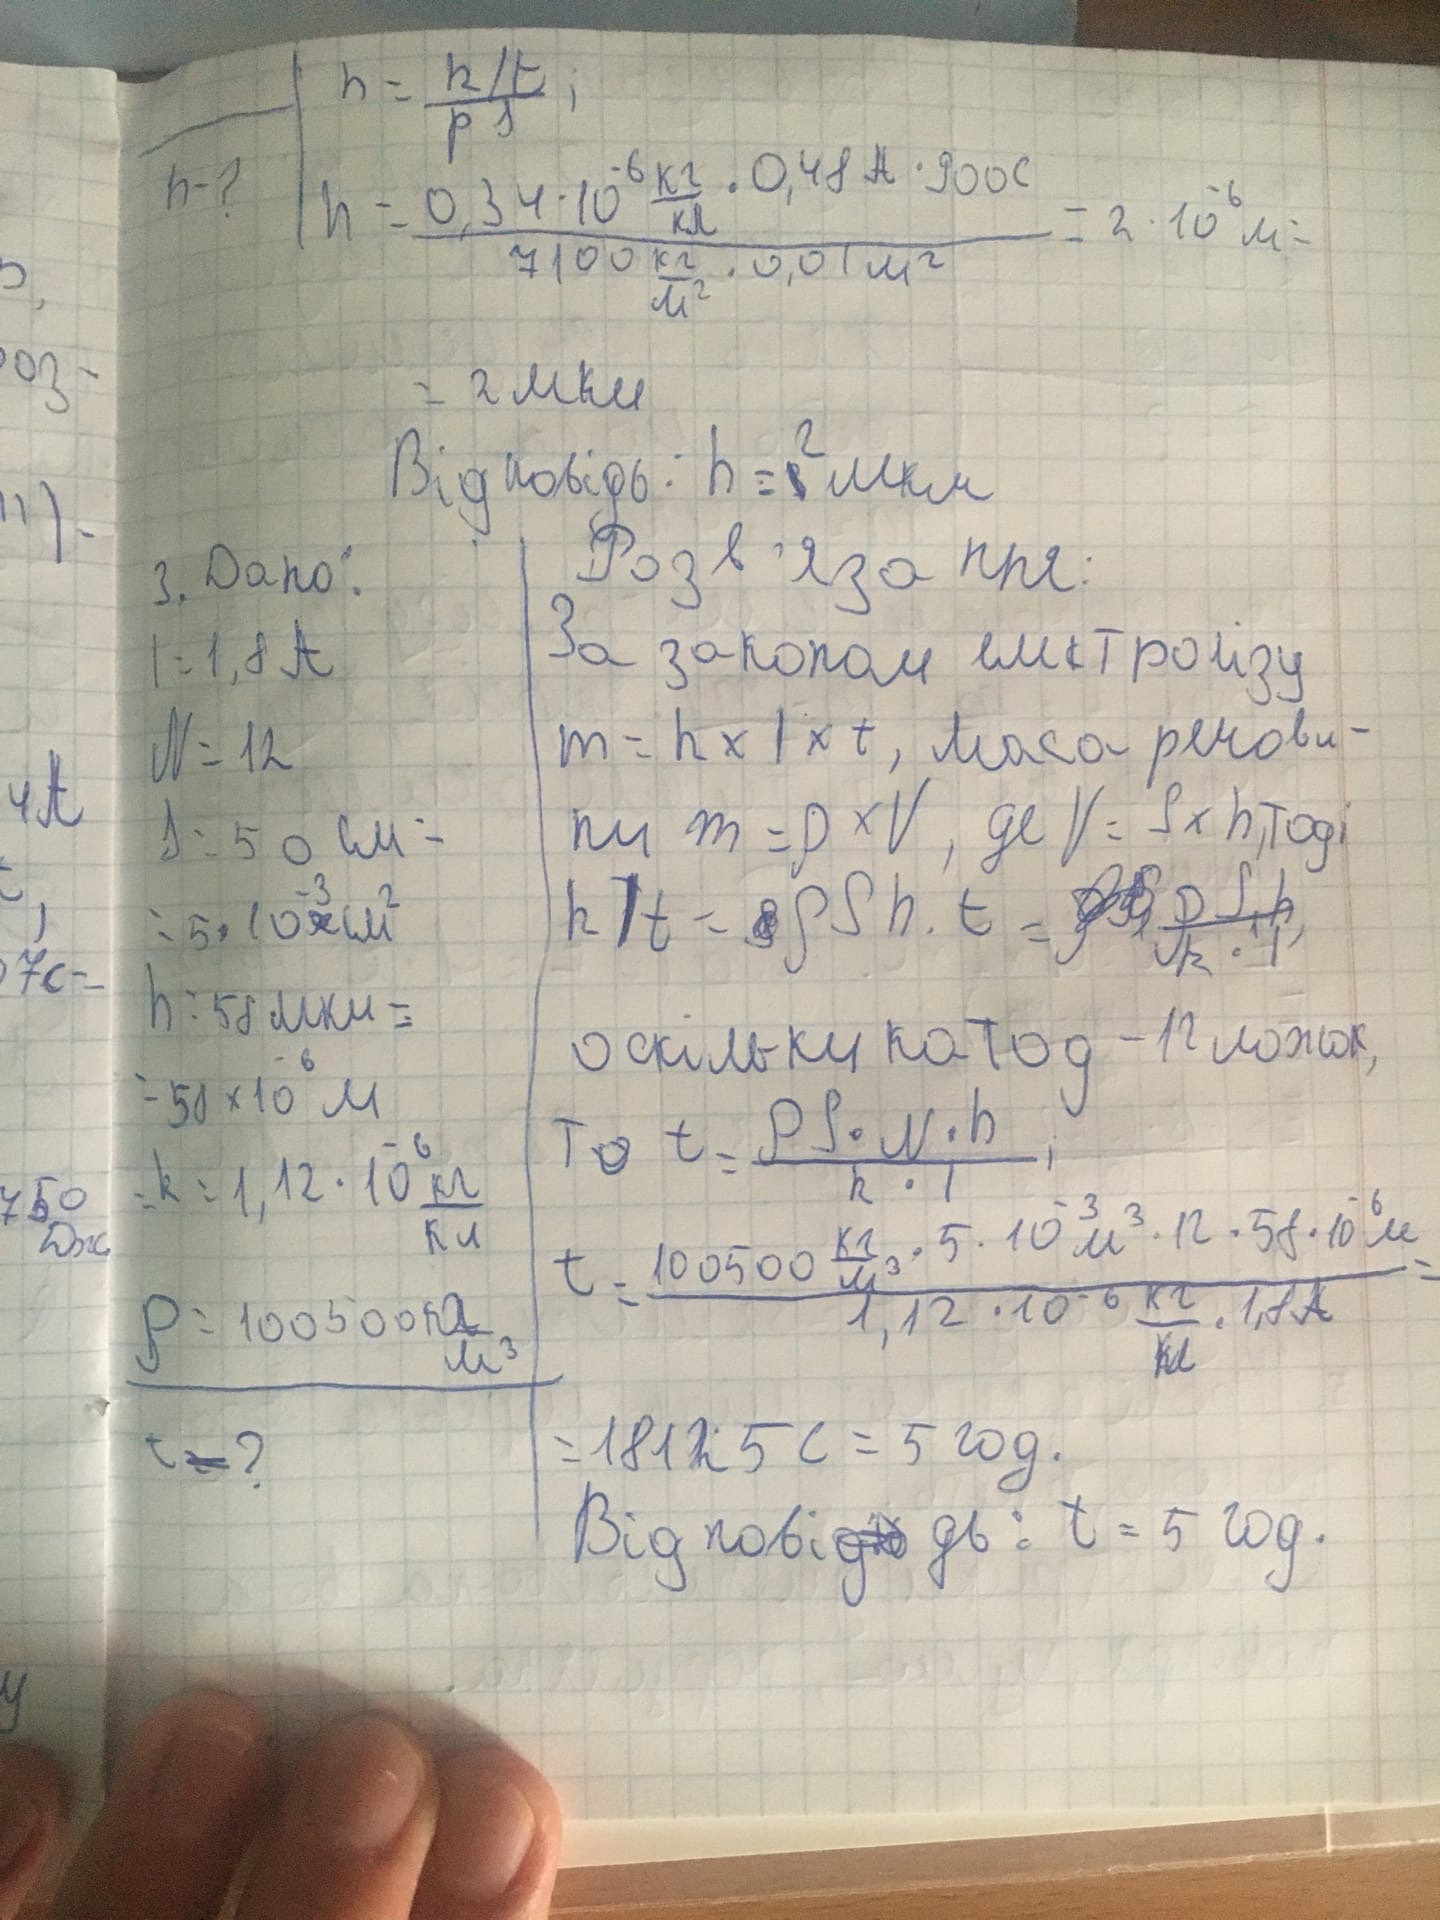 h = kIt / ρS ;
h-?
h = 0,34·10⁻⁶ кг/кл · 0,48 А · 900с / 7100 кг/м² · 0,01 м² = 2·10⁻⁶ м =
= 2 мкм
Відповідь: h = 2 мкм
3. Дано:
I = 1,8 А
N = 12
S = 50 см =
= 5·10⁻³ м²
h = 58 мкм =
= 58 × 10⁻⁶ м
k = 1,12·10⁻⁶ кг/кл
ρ = 100500 кг/м³
t - ?
Розв'язання:
За законом електролізу
m = k × I × t, маса речови-
ни m = ρ × V, де V = S × h, тоді
kIt = ρSh. t = ρSh / k·I,
оскільки катод - 12 ложок,
то t = ρS·N·h / k·I ;
t = 100500 кг/м³ · 5·10⁻³ м³ · 12 · 58·10⁻⁶ м / 1,12·10⁻⁶ кг/кл · 1,8 А =
= 18125 с = 5 год.
Відповідь: t = 5 год.
4А
07с=
750
Дж